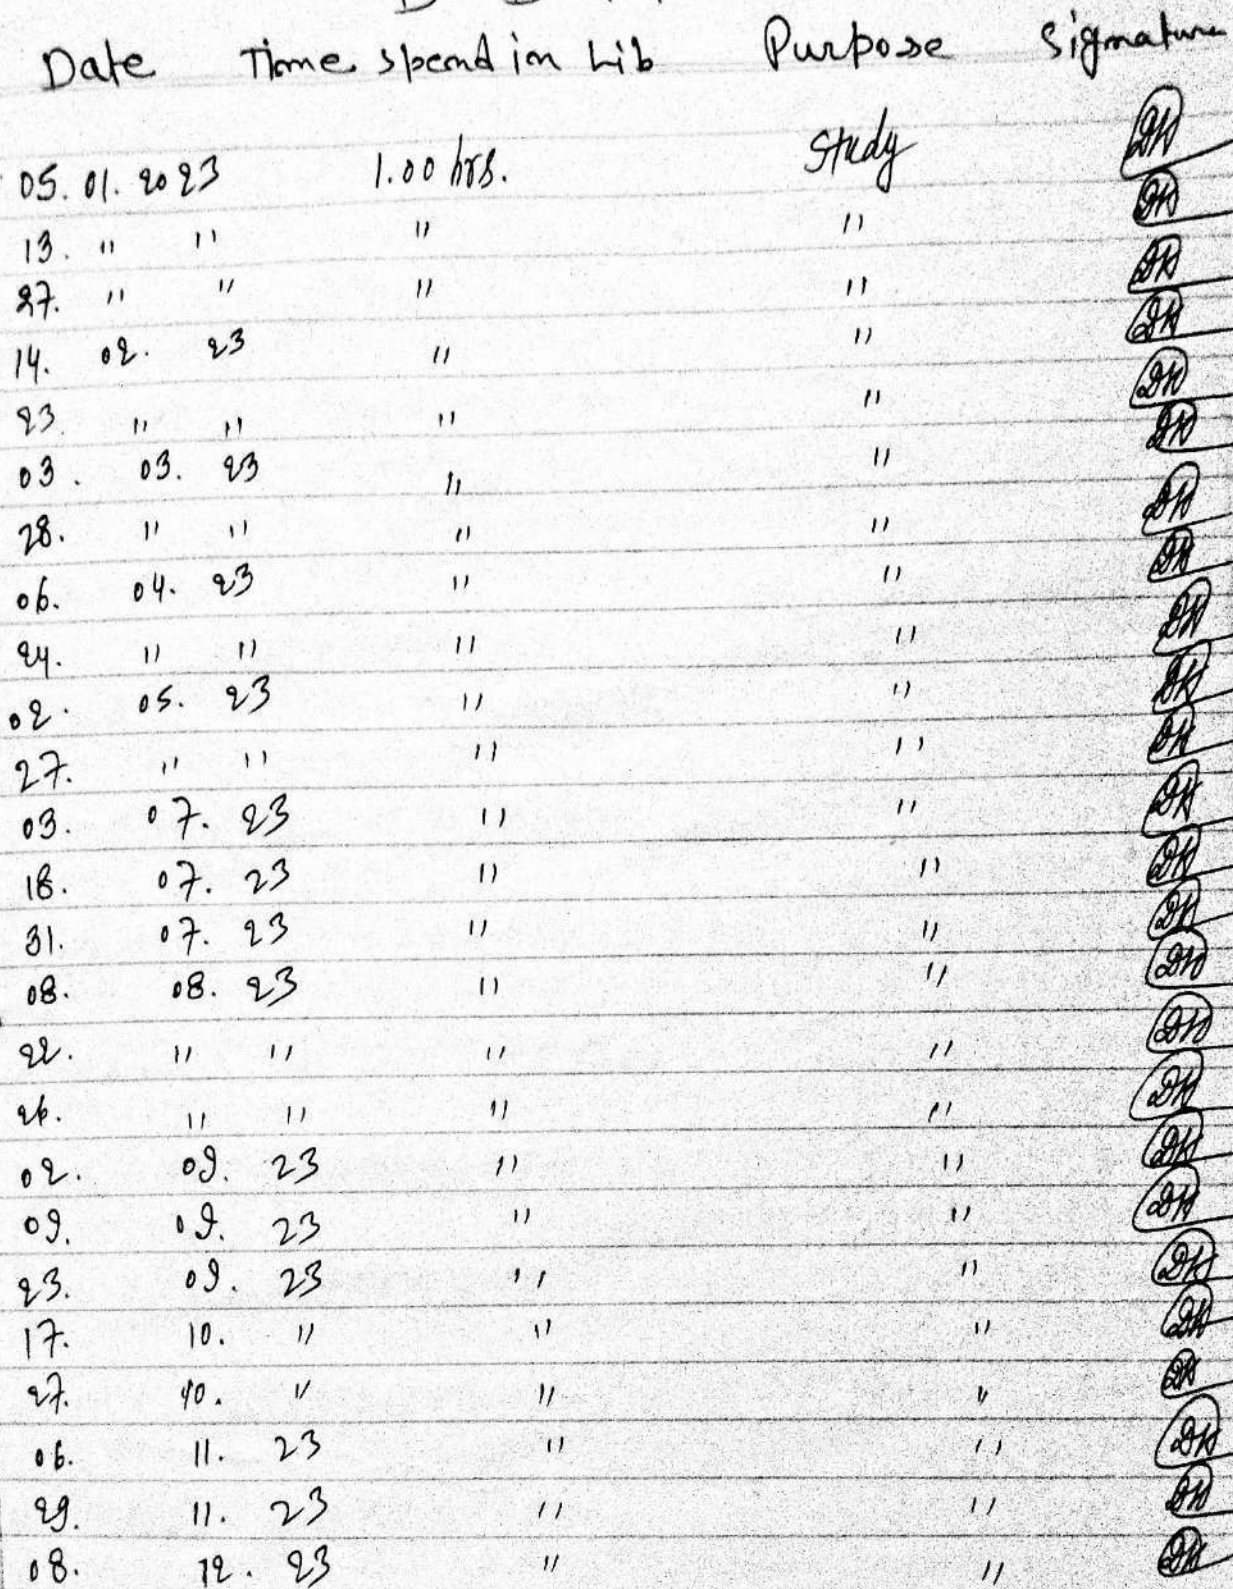 Date Time spend in Lib Purpose Signature
05. 01. 2023 1.00 hrs. Study DK
13. " " " " DK
27. " " " " DK
14. 02. 23 " " DK
23. " " " " DK
03. 03. 23 " " DK
28. " " " " DK
06. 04. 23 " " DK
24. " " " " DK
02. 05. 23 " " DK
27. " " " " DK
03. 07. 23 " " DK
18. 07. 23 " " DK
31. 07. 23 " " DK
08. 08. 23 " " DK
22. " " " " DK
26. " " " " DK
02. 09. 23 " " DK
09. 09. 23 " " DK
23. 09. 23 " " DK
17. 10. " " " DK
27. 10. " " " DK
06. 11. 23 " " DK
29. 11. 23 " " DK
08. 12. 23 " " DK